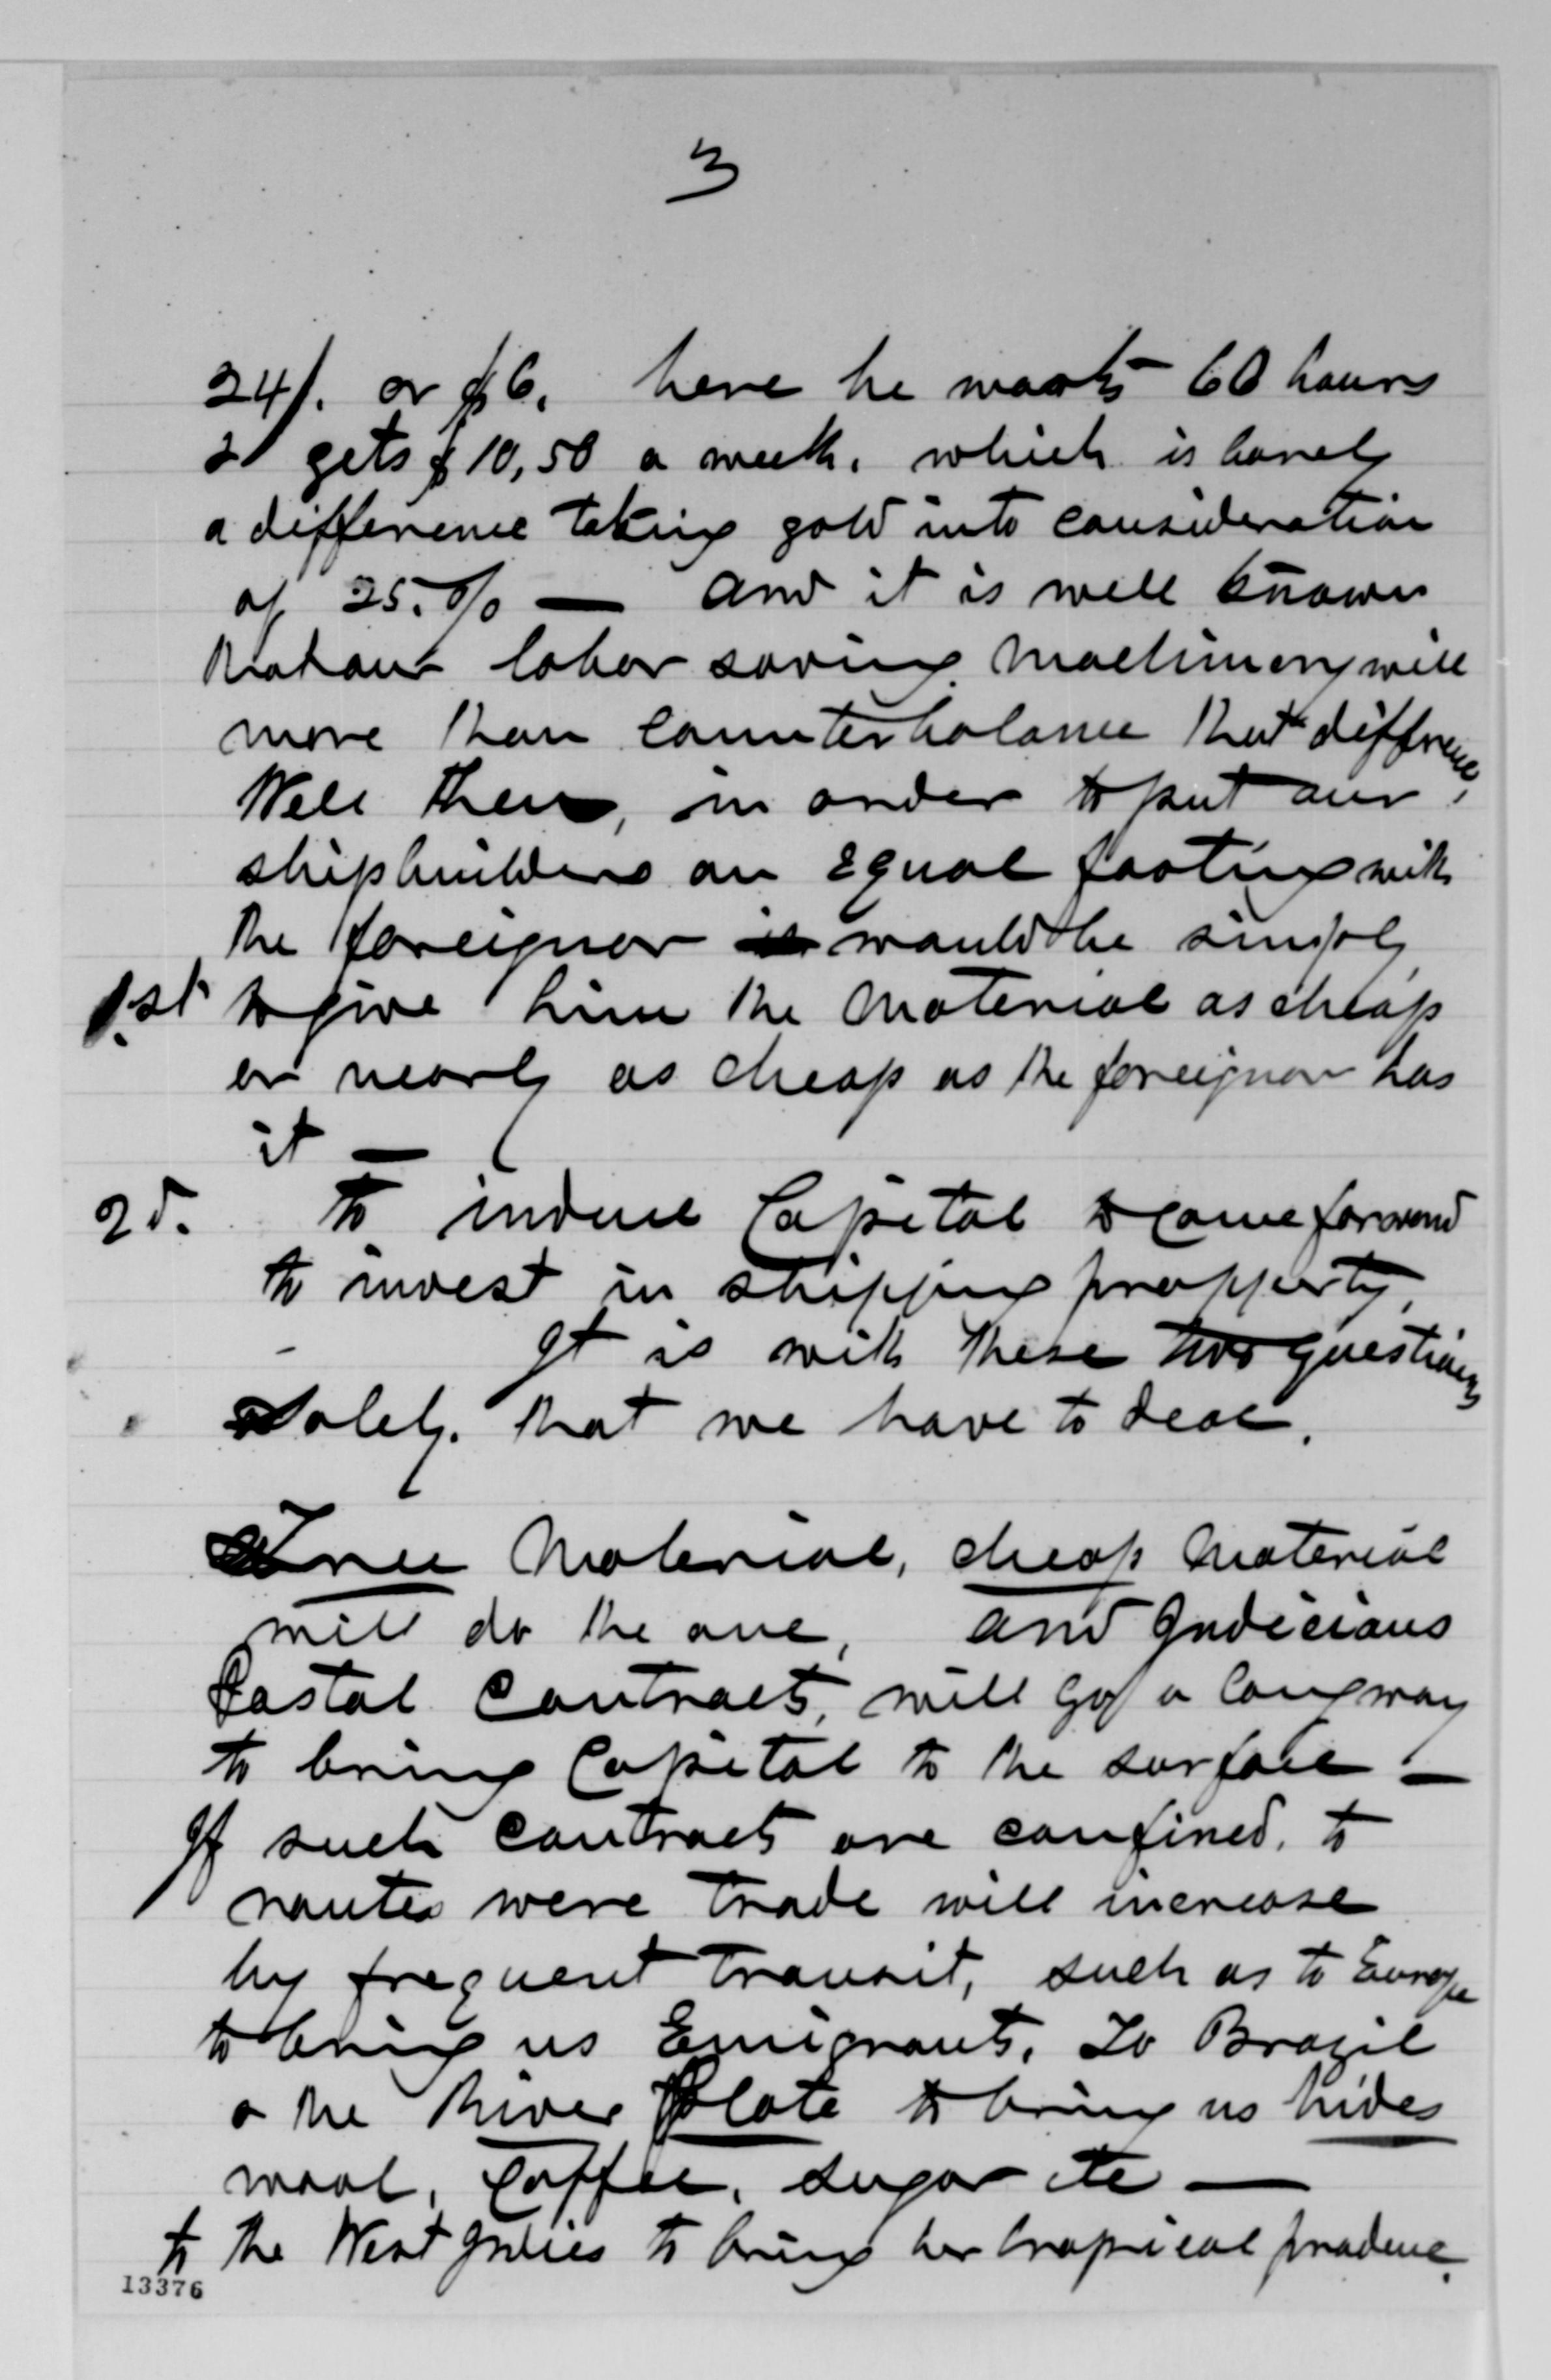 3
24/. or $6. here he works 60 hours
& gets $10,50 a week. which is barely
a difference taking gold into consideration
of 25.% — and it is well known
that our labor saving machinery will
more than counterbalance that difference,
Well then, in order to put our
shipbuilders on equal footing with
the foreigner would be simply
1st to give him the material as cheap
or nearly as cheap as the foreigner has
it —
2d. to induce Capital to come forward
to invest in shipping propperty,
It is with these two questions
solely. that we have to deal.
Free Material, cheap material
will do the one, and Judicious
Postal Contracts, will go a long way
to bring Capital to the surface —
If such Contracts are confined. to
routes were trade will increase
by frequent transit, such as to Europe
to bring us Emigrants. To Brazil
& the River Plate to bring us hides
wool, Coffee, sugar etc —
to the West Indies to bring her tropical produce.
13376